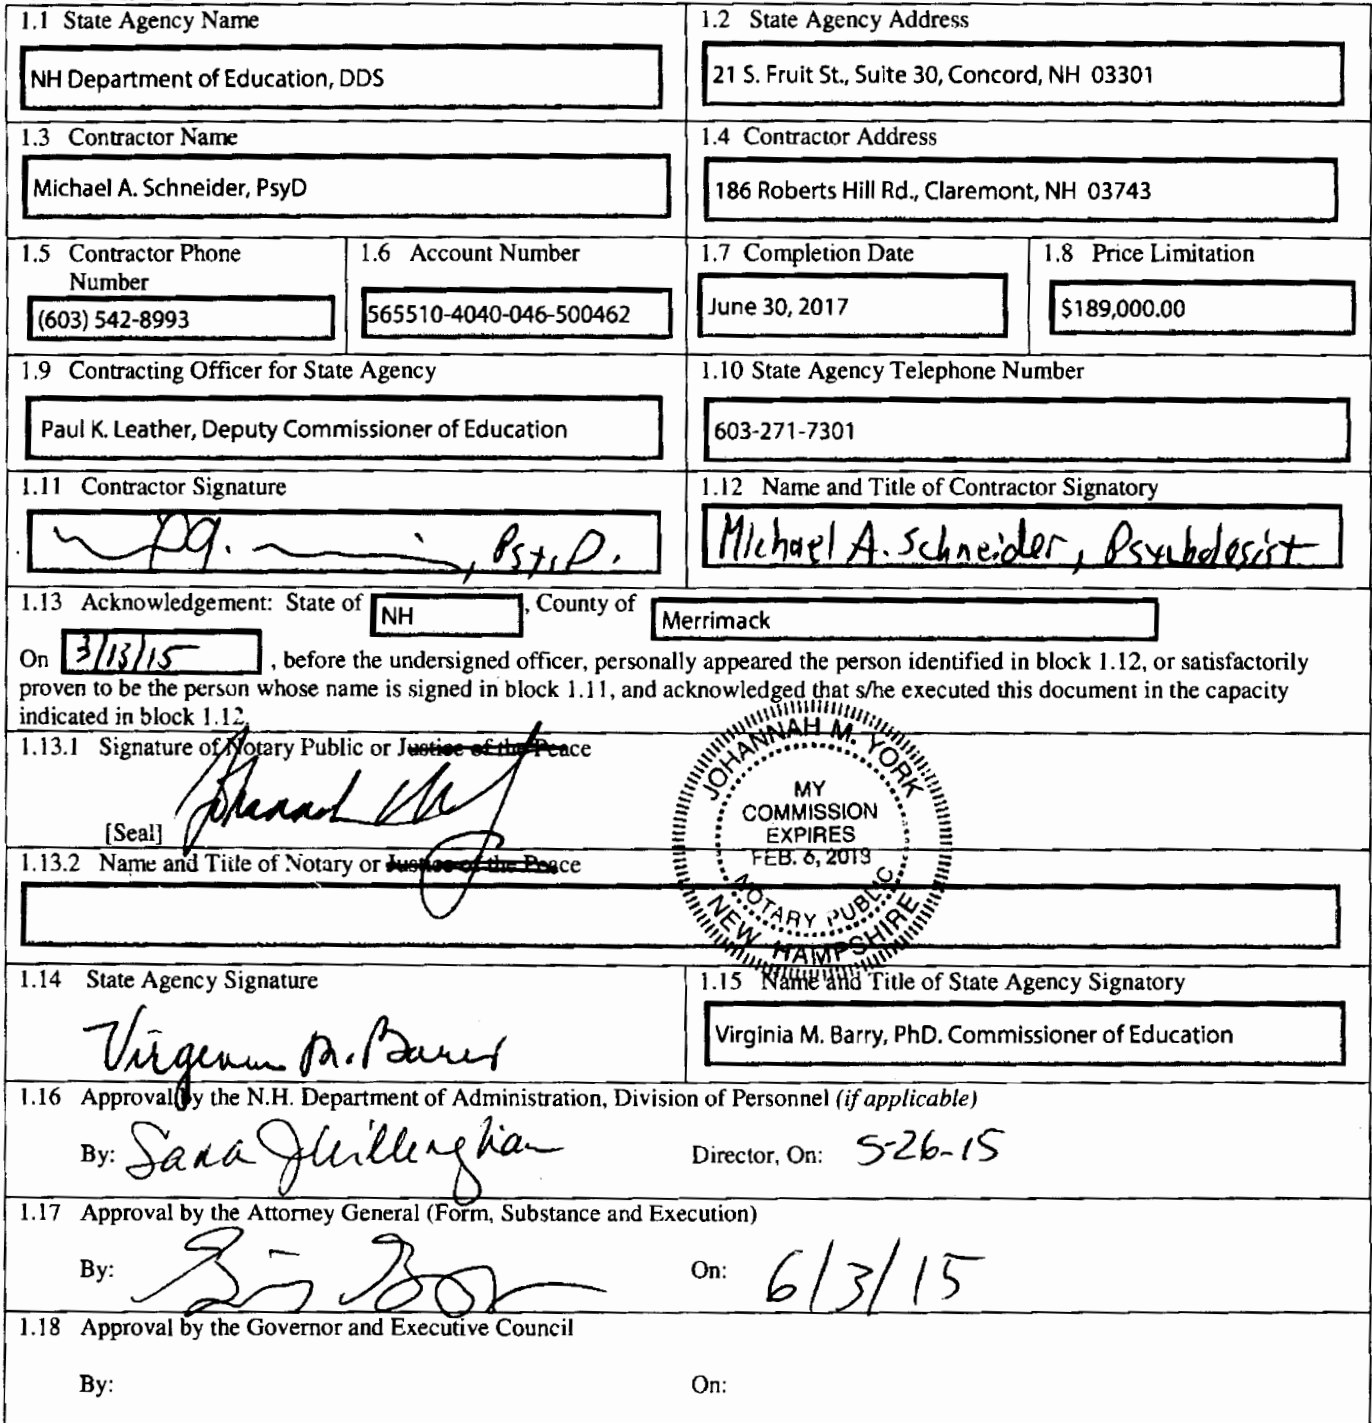 1.1 State Agency Name
NH Department of Education, DDS
1.2 State Agency Address
21 S. Fruit St., Suite 30, Concord, NH 03301
1.3 Contractor Name
Michael A. Schneider, PsyD
1.4 Contractor Address
186 Roberts Hill Rd., Claremont, NH 03743
1.5 Contractor Phone
Number
(603) 542-8993
1.6 Account Number
565510-4040-046-500462
1.7 Completion Date
June 30, 2017
1.8 Price Limitation
$189,000.00
1.9 Contracting Officer for State Agency
Paul K. Leather, Deputy Commissioner of Education
1.10 State Agency Telephone Number
603-271-7301
1.11 Contractor Signature
, Psy.D.
1.12 Name and Title of Contractor Signatory
Michael A. Schneider, Psychologist
1.13 Acknowledgement: State of NH, County of Merrimack
On 3/13/15, before the undersigned officer, personally appeared the person identified in block 1.12, or satisfactorily
proven to be the person whose name is signed in block 1.11, and acknowledged that s/he executed this document in the capacity
indicated in block 1.12.
1.13.1 Signature of Notary Public or Justice of the Peace
[Seal]
JOHANNAH M. YORK
MY
COMMISSION
EXPIRES
FEB. 6, 2019
NOTARY PUBLIC
NEW HAMPSHIRE
1.13.2 Name and Title of Notary or Justice of the Peace
1.14 State Agency Signature
Virginia M. Barry
1.15 Name and Title of State Agency Signatory
Virginia M. Barry, PhD. Commissioner of Education
1.16 Approval by the N.H. Department of Administration, Division of Personnel (if applicable)
By: Sara J Willingham
Director, On: 5-26-15
1.17 Approval by the Attorney General (Form, Substance and Execution)
By:
On: 6/3/15
1.18 Approval by the Governor and Executive Council
By:
On: